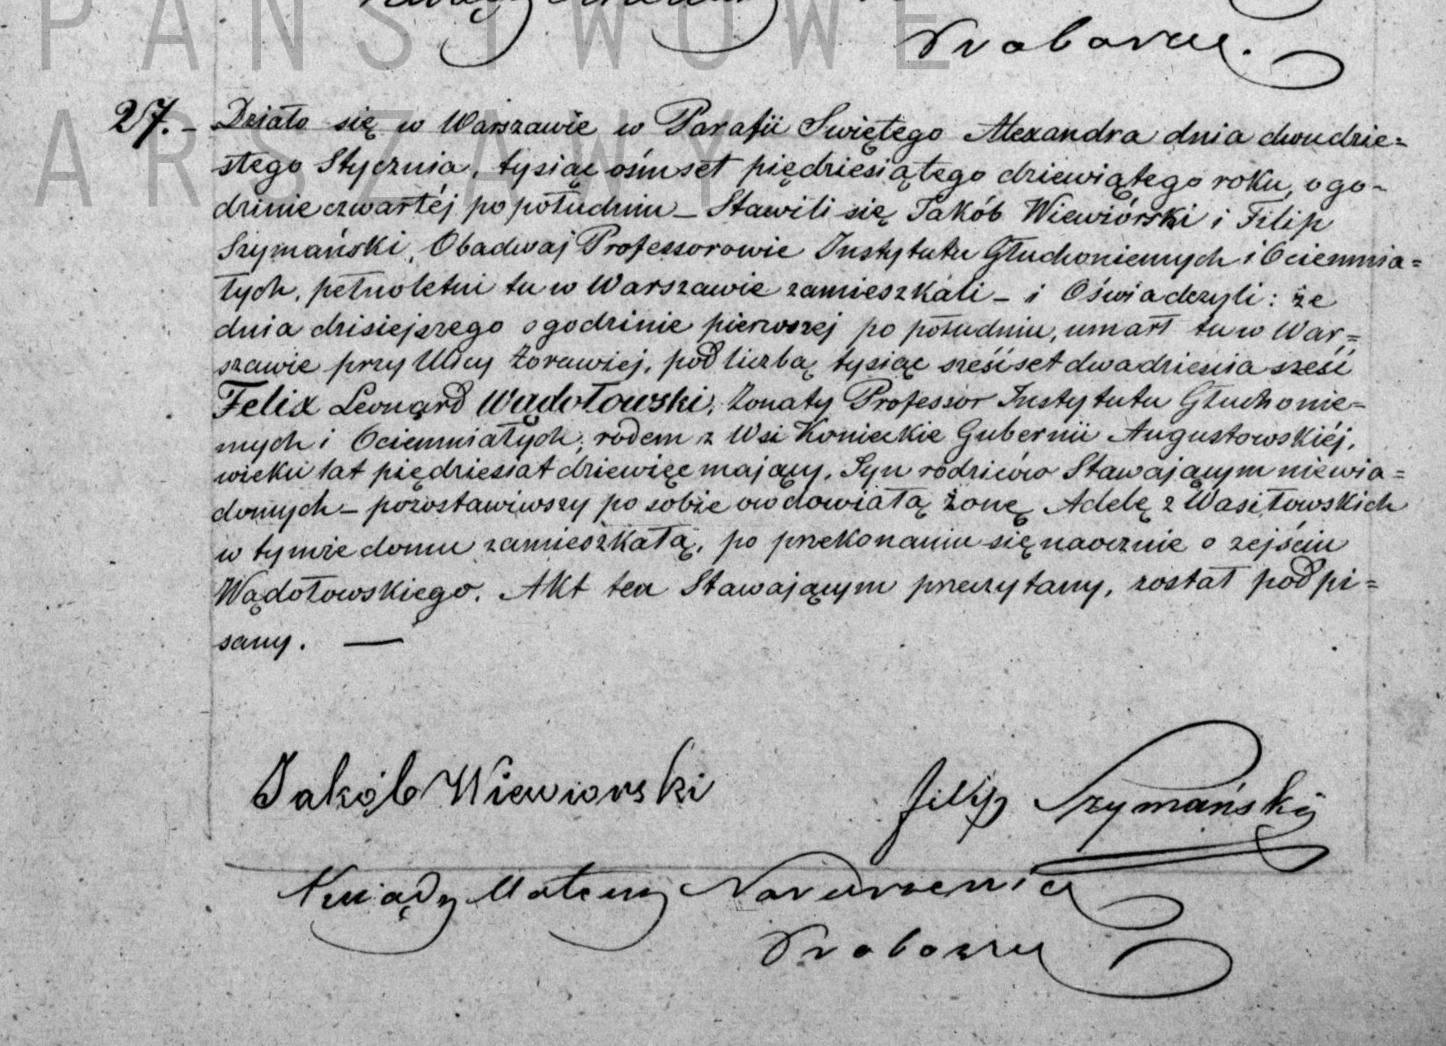 PAŃSTWOWE
Proboszcz.
ARSZAWY
27. – Działo się w Warszawie w Parafii Swiętego Alexandra dnia dwudzie=
stego Stycznia, tysiąc ośmset piędziesiątego dziewiątego roku, o go-
dzinie czwartéj po południu – Stawili się Jakób Wiewiórski i Filip
Szymański, Obadwaj Professorowie Instytutu Głuchoniemych i Ociemnia=
łych, pełnoletni tu w Warszawie zamieszkali – i Oświadczyli: że
dnia dzisiejszego o godzinie pierwszej po południu, umarł tu w War=
szawie przy Ulicy Żorawiej, pod liczbą tysiąc sześćset dwadzieścia sześć
Felix Leonard Wądołowski, Żonaty Professor Instytutu Głuchonie-
mych i Ociemniałych, rodem z Wsi Konieckie Gubernii Augustowskiéj,
wieku lat piędziesiat dziewięc mający, Syn rodziców Stawającym niewia=
domych – pozostawiwszy po sobie owdowiałą żonę Adelę z Wasiłowskich
w tymże domu zamieszkałą, po przekonaniu się naocznie o zejściu
Wądołowskiego. Akt ten Stawającym przeczytany, został podpi=
sany. —
Jakób Wiewiorski
Filip Szymański
Ksiądz Mateusz
Proboszcz